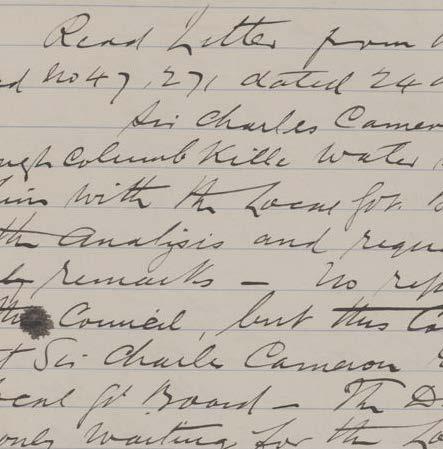 Read Letter from
No 47,271 dated 24
Sir Charles Camer
ugh Columb Kille Water
him with the Local Gov. B
the Analysis and requ
remarks – No rep
the Council, but this Co
Sir Charles Cameron
ocal Gt Board – The D
only waiting for the Lo